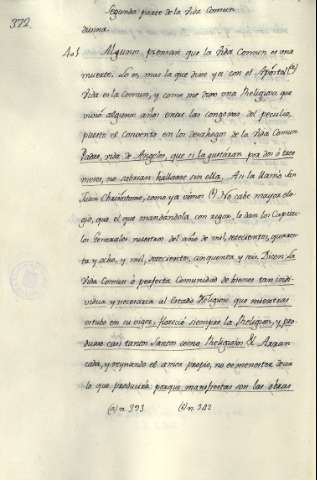 372
Segunda parte de la Vida Comun
divina.
403 Algunos piensan que la Vida Comun es una
muerte. Lo es, mas la que dixe ya con el Apóstol (a)
Vida es la Comun, y como me dixo una Religiosa que
vivió algunos años entre las congoxas del peculio,
puesto el convento en los desahogos de la Vida Comun
Padre, vida de Angeles, que si la quitáran por dos ó tres
meses, no sabrian hallarse sin ella. Asi la llamó San
Juan Chrisóstomo, como ya vimos (b) No cabe mayor elo-
gio, que el que mandándola con rigor, le dan los Capitu-
los Generales nuestros del año de mil, setecientos, quaren-
ta y ocho, y mil, setecientos, cinquenta y seis. Dicen: La
Vida Comun ó perfecta Comunidad de bienes tan indi-
vidua y necesaria al Estado Religioso, que mientras
estubo en su vigor, floreció siempre la Religion, y pro-
duxo casi tantos Santos como Religiosos &. Arran-
cada, y reynando el amor propio, no es menester decir
lo que produciria: porque manifiestas son las obras
(a) n. 393 (b) n. 342